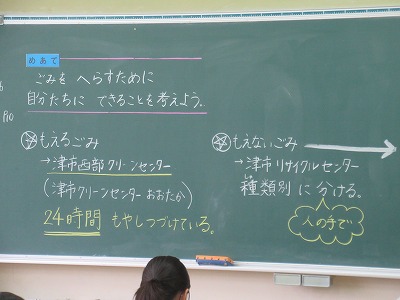 めあて
ごみを へらすために
自分たちに できることを考えよう。
P10
☆もえるごみ
→津市西部クリーンセンター
(津市クリーンセンターおおたか)
24時間 もやしつづけている。
☆もえないごみ
→津市リサイクルセンター
種類別に分ける。
人の手で